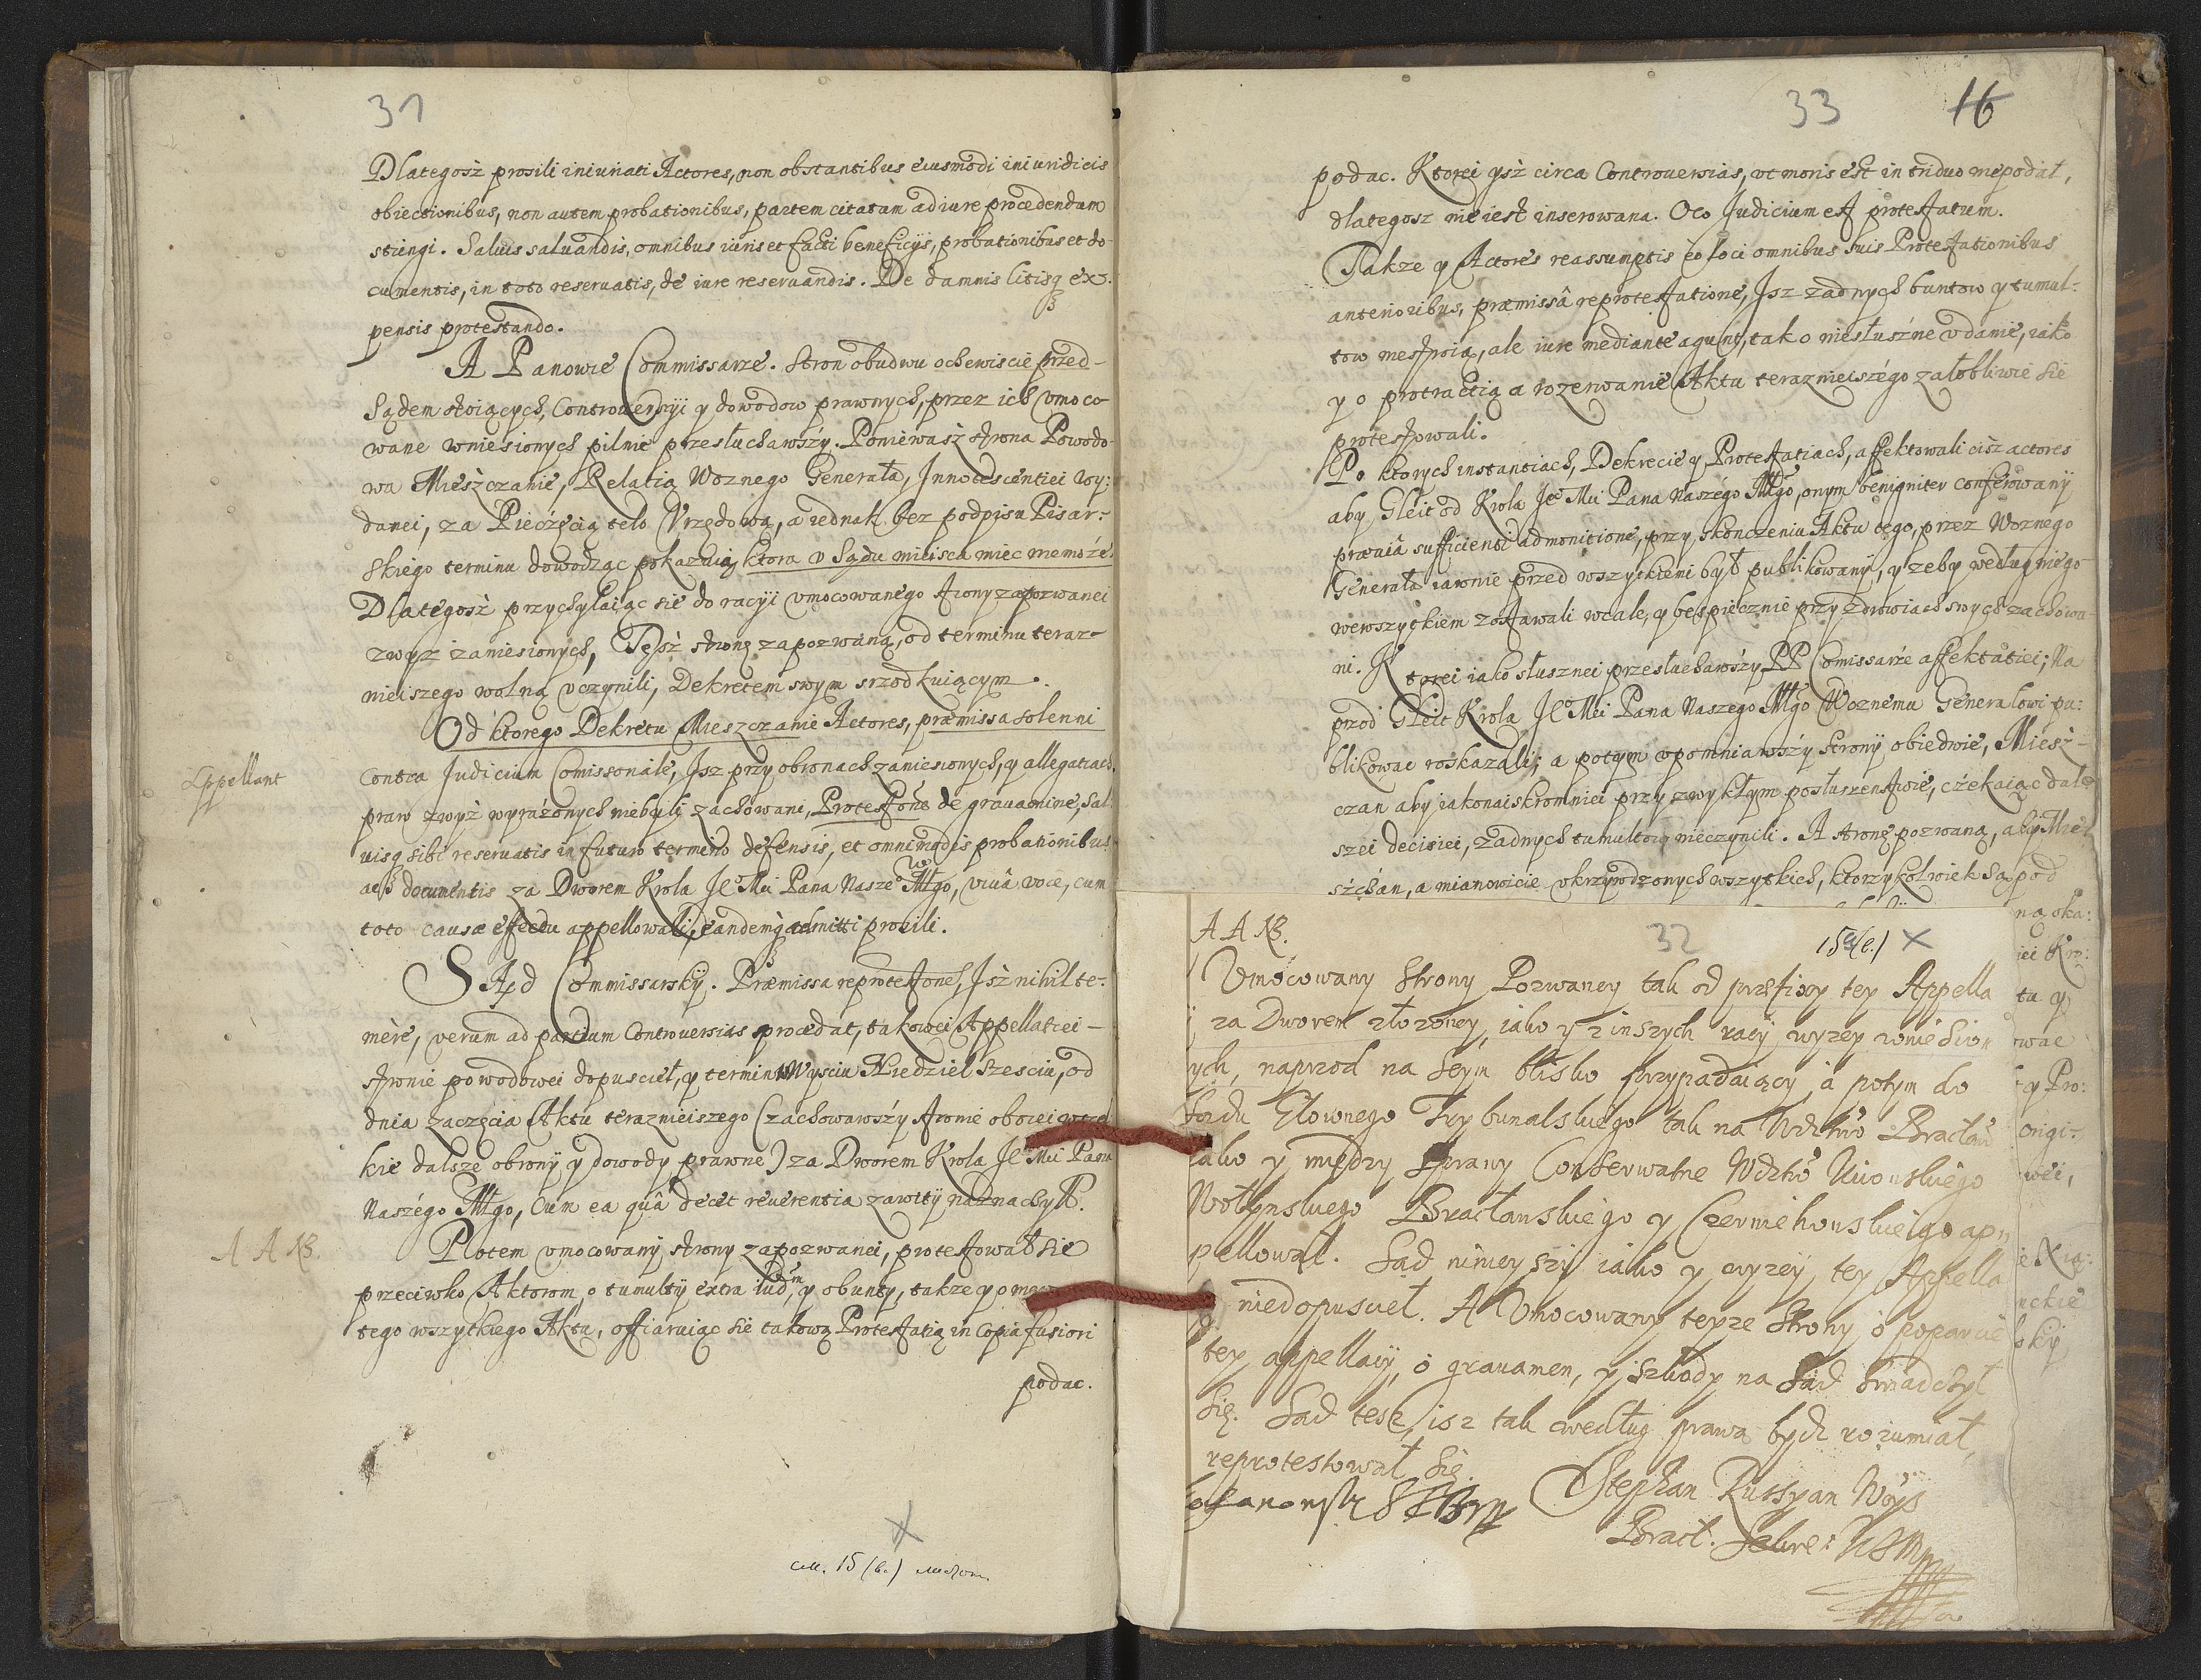 31
Dlategosż prosili iniuriati Actores, non obstantibus eiusmodi iniuridicis
obiectionibus, non autem probationibus, partem citatam ad iure procedendum
stringi. Saluis saluandis, omnibus iuris et facti beneficijs, probationibus et do-
cumentis, in toto reseruatis, de iure reseruandis. De damnis litisq ex-
pensis protestando.
A Panowie Commissarze. Stron obudwu ochewiscie przed-
Sądem stoiących, Controuersyi y dowodow prawnych, przez ich vmoco-
wane wniesionych pilnie przesłuchawszy. Poniewasz strona Powodo-
wa Mieszczanie, Relatią Woznego Generała, Innotescentiei wy:
danei, za Pieczęcią telo Vrzędową, a iednak bez podpisu Pisar:
skiego terminu dowodząc pokazuią, ktora v Sądu mieisca miec niemoże.
Dlategosż przychylaiąc sie do racyi vmocowanego strony zapozwanei
zwyż zaniesionych, Tęsz stronę zapozwaną, od terminu teraz-
nieiszego wolną vczynili, Dekretem swym srzodkuiącym.
Od ktorego Dekretu Mieszczanie Actores, præmissa solenni
Appellant
Contra Judicium Comissoriale, Jsz przy obronach zaniesionych, y allegatiach
praw zwyż wyrażonych niebyli zachowani, Protestone de grauamine, Sal
uisq sibi reseruatis in futuro termino defensis, et omnimodis probationibus
acq documentis za Dworem Krola Jeo Mci Pana Nasze° Młgo, viuâ voce, cum
toto causæ effectu appellowali, eandemq admitti prosili.
SAąd Commissarsky. Præmissa reprotestone, Jsż nihil te-
mere, verum ad partium Controuersias procedat, takowei Appellatiei-
stronie powodowei dopuscieł, y termin Wysciu Niedziel szesciu, od
dnia zaczęcia Aktu teraznieiszego (zachowawszy stronie oboiei wszel
kie dalsze obrony y dowody prawne) za Dworem Krola Jeo Mci Pana
Naszégo Młgo, Cum ea quâ decet reuerentia zawity naznaczył.
A A NB.
Potem vmocowany strony zapozwanei, protestował sie
przeciwko Aktorom, o tumulty extra iudm, y o bunty, takze y o
tego wszytkiego Aktu, offiaruiąc sie takową Protestatią in Copia fusiori
podac.
см. 15 (в.) листом
33 16
podac. Ktorei ysż circa Controuersias, vt moris est in triduo niepodał,
dlategosz nie iest inserowana. Oco Judicium est protestatum.
Takze y Actores reassumptis eo loci omnibus suis Protestationibus
anterioribus, præmissâ reprotestatione, Jsz zadnych buntow y tumul-
tow niestroią, ale iure mediante agunt, tak o niesłuszne vdanie, iako
y o protractią a rozerwanie Aktu teraznieiszégo załobliwie sie
protestowali.
Po ktorych instantiach, Dekrecie y Protestatiach, affektowali cisz actores
aby Gleit od Krola Jeo Mci Pana Naszégo Młgo, onym benigniter conferowany
præuiâ sufficienti admonitione, przy skończeniu Aktu tego, przez Woznego
Generała iawnie przed wszytkiemi był publikowany, y zeby według niego
wewszytkiem zostawali wcale, y bespiecznie przy zdrowiach swych zachowa-
ni. Ktorei iako słusznei przesłuchawszy PP Comissarze affektatiei; Na
przod Gleit Krola Jeo Mci Pana Naszego Młgo Woznemu Generałowi pu:
blikowac roskazali; a potym vpomniawszy Strony obiedwie, Miesz-
czan aby iakonaiskromniei przy zwykłym posłuszenstwie, czekaiąc dal
szei decisiei, zadnych tumultow nieczynili. A stronę pozwaną, aby Miesz
szczan, a mianowicie vkrzywdzonych wszytkich, ktorzykolwiek Są pod
A A NB. 32 15 (в.) X
Vmocowany Strony Pozwaney tak od prefixy tey Appella
za Dworem złozoney, iako y z inszych racij wyzey wniesion
ych, naprzod na Seym blisko przypadaiący a potym do
Sądu Głownego Trybunalskiego tak na Wdztwo Bracław
iako y między Sprawy Conserwatne Wdztw Kiiowskiego
Wołynskiego Bracławskiego y Czerniehowskiego app
pellował. Sąd ninieyszy iako y wyzey tey Appella
niedopuscieł. A Vmocowany teyze Strony o poparcie
tey appellacij, o grauamen, y szkody na Sąd swiadczył
Się. Sąd tesz, isz tak według prawa bydz rozumiał,
reprotestował Się.
Stephan Russyan Woys
Bracł.
ną oka:
iei Kro:
tu y
owac
y Pro:
origi-
wei,
nckie
sky